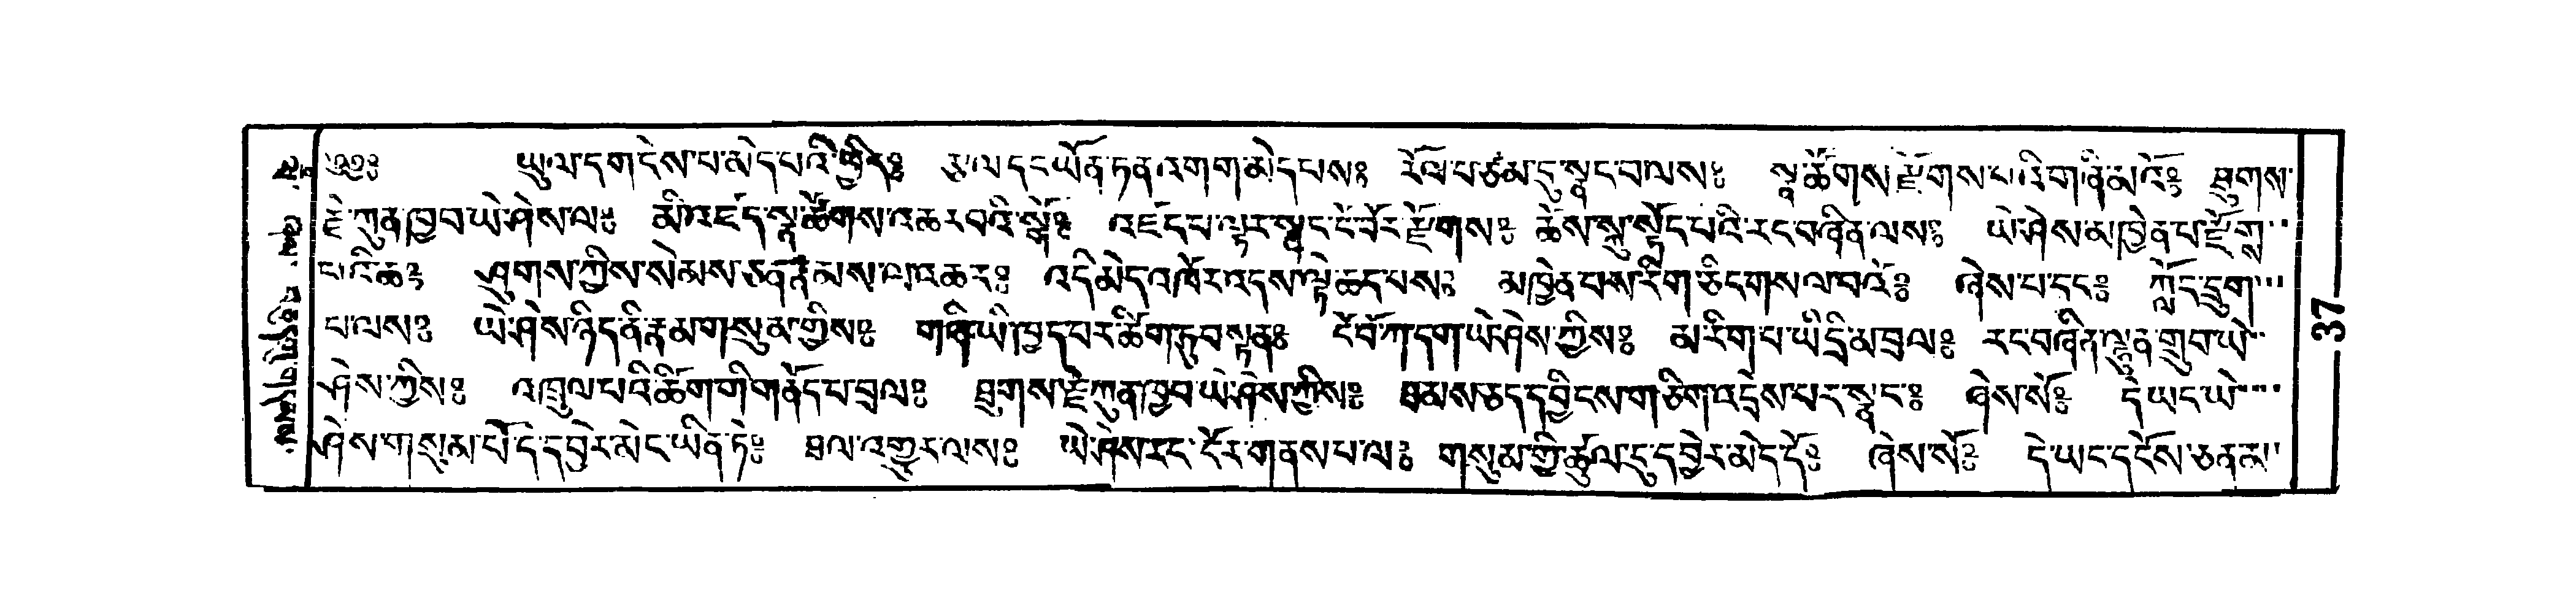 ༄༅༔ ཡུལ་དག་ངེས་པ་མེད་པའི་ཕྱིར༔ རྩལ་དང་ཡོན་ཏན་འགག་མེད་པས༔ རོལ་པ་ཙམ་དུ་སྣང་བ་ལས༔ སྣ་ཚོགས་རྫོགས་པའི་གཞི་མའོ༔ ཐུགས་
རྗེ་ཀུན་ཁྱབ་ཡེ་ཤེས་ལ༔ མི་འཛད་སྣ་ཚོགས་འཆར་བའི་སྒོ༔ འཛད་པ་ལྟར་སྣང་ངོ་བོར་རྫོགས༔ ཆོས་སྐུ་སྟོང་པའི་རང་བཞིན་ལས༔ ཡེ་ཤེས་མཁྱེན་པ་རྫོགས
པའི་ཆ༔ ཐུགས་ཀྱིས་སེམས་ཅན་རྣམས་ལ་འཆར༔ འདི་མེད་འཁོར་འདས་ལྟེ་ཆད་པས༔ མཁྱེན་པས་རིག་ཅིང་གསལ་བའོ༔ ཞེས་པ་དང༔ ཀློང་དྲུག་
པ་ལས༔ ཡེ་ཤེས་ཉིད་ནི་རྣམ་གསུམ་གྱིས༔ གཞི་ཡི་ཁྱད་པར་ཚིག་ཏུ་བསྟན༔ ངོ་བོ་ཀ་དག་ཡེ་ཤེས་ཀྱིས༔ མ་རིག་པ་ཡི་དྲི་མ་བྲལ༔ རང་བཞིན་ལྷུན་གྲུབ་ཡེ་
ཤེས་ཀྱིས༔ འཁྲུལ་པའི་ཚིག་གི་གནོད་པ་བྲལ༔ ཐུགས་རྗེ་ཀུན་ཁྱབ་ཡེ་ཤེས་ཀྱིས༔ ཐམས་ཅད་དབྱིངས་གཅིག་འདྲེས་པར་སྣང༔ ཞེས་སོ༔ དེ་ཡང་ཡེ་
ཤེས་གསུམ་པོ་དེ་དབྱེར་མེད་ཡིན་ཏེ༔ ཐལ་འགྱུར་ལས༔ ཡེ་ཤེས་རང་ངོར་གནས་པ་ལ༔ གསུམ་གྱི་ཚུལ་དུ་དབྱེར་མེད་དོ༔ ཞེས་སོ༔ དེ་ཡང་དངོས་ཅན་མ་